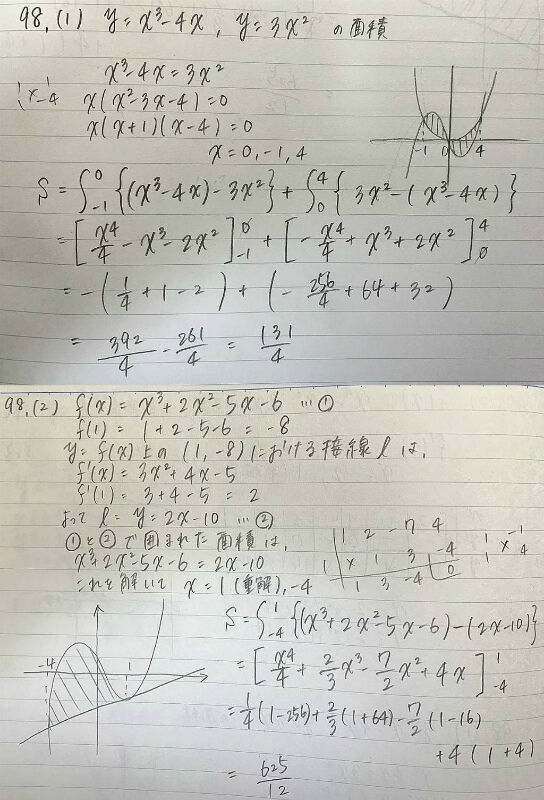 98.(1) y = x³-4x , y = 3x² の面積
x³-4x = 3x²
x(x²-3x-4)=0
x(x+1)(x-4)=0
x=0, -1, 4
-1 0 4
S = ∫₋₁⁰ {(x³-4x)-3x²} + ∫₀⁴ { 3x²-(x³-4x) }
= [ x⁴/4 - x³ - 2x² ]₋₁⁰ + [ -x⁴/4 + x³ + 2x² ]₀⁴
= -( 1/4 + 1 - 2 ) + ( - 256/4 + 64 + 32 )
= 392/4 - 261/4 = 131/4
98.(2) f(x) = x³+2x²-5x-6 …①
f(1) = 1+2-5-6 = -8
y=f(x)上の (1, -8) における接線 l は、
f'(x) = 3x²+4x-5
f'(1) = 3+4-5 = 2
よって l = y = 2x-10 …②
①と②で囲まれた面積は、
x³+2x²-5x-6 = 2x-10
これを解いて x = 1 (重解), -4
1 2 -7 4
1 x 1 3 -4
1 3 -4 0
1 -1
1 x 4
-4 1
S = ∫₋₄¹ {(x³+2x²-5x-6)-(2x-10)}
= [ x⁴/4 + 2/3 x³ - 7/2 x² + 4x ]₋₄¹
= 1/4 (1-256) + 2/3 (1+64) - 7/2 (1-16)
+4 (1+4)
= 625/12